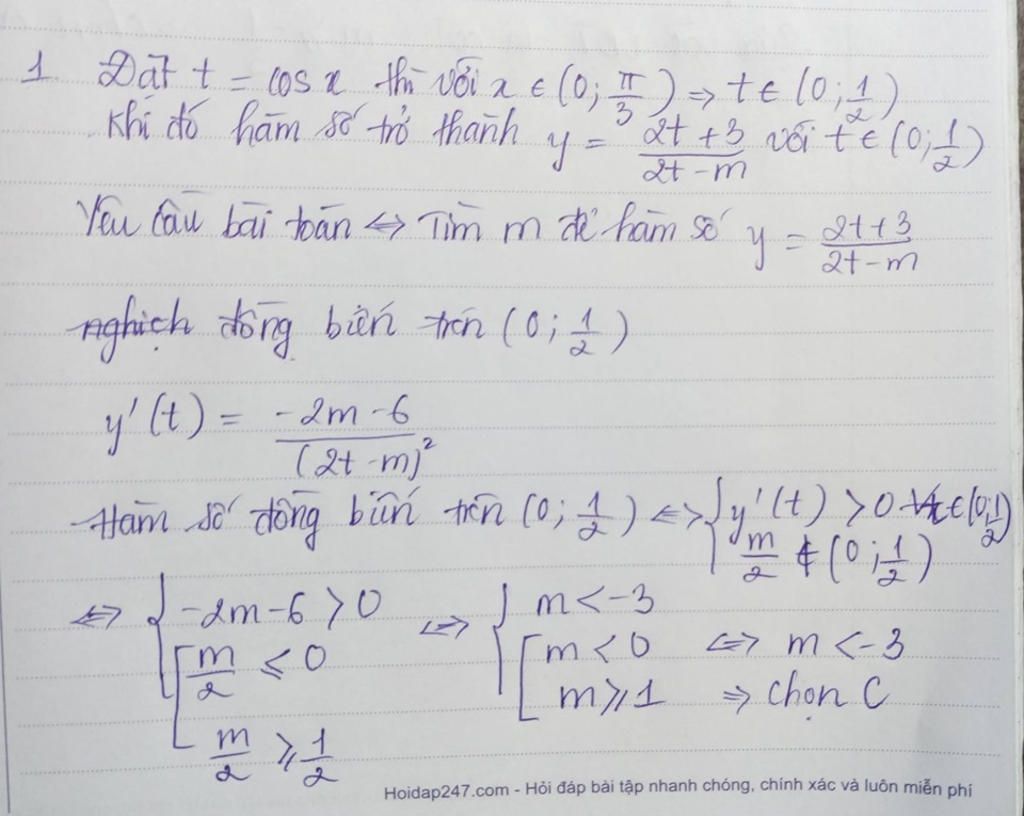 1. Đặt t = cos x thì với x ∈ (0; π/3) ⇒ t ∈ (0; 1/2)
Khi đó hàm số trở thành y = (2t + 3)/(2t - m) với t ∈ (0; 1/2)
Yêu cầu bài toán ⇔ Tìm m để hàm số y = (2t+3)/(2t-m)
nghịch đồng biến trên (0; 1/2)
y'(t) = (-2m - 6)/(2t - m)²
Hàm số đồng biến trên (0; 1/2) ⇔ { y'(t) > 0 ∀t ∈ (0; 1/2)
m/2 ∉ (0; 1/2)
⇔ { -2m - 6 > 0 ⇔ { m < -3
[ m/2 ≤ 0 [ m < 0 ⇔ m < -3
m/2 ≥ 1/2 m ≥ 1 ⇒ chọn C
Hoidap247.com - Hỏi đáp bài tập nhanh chóng, chính xác và luôn miễn phí